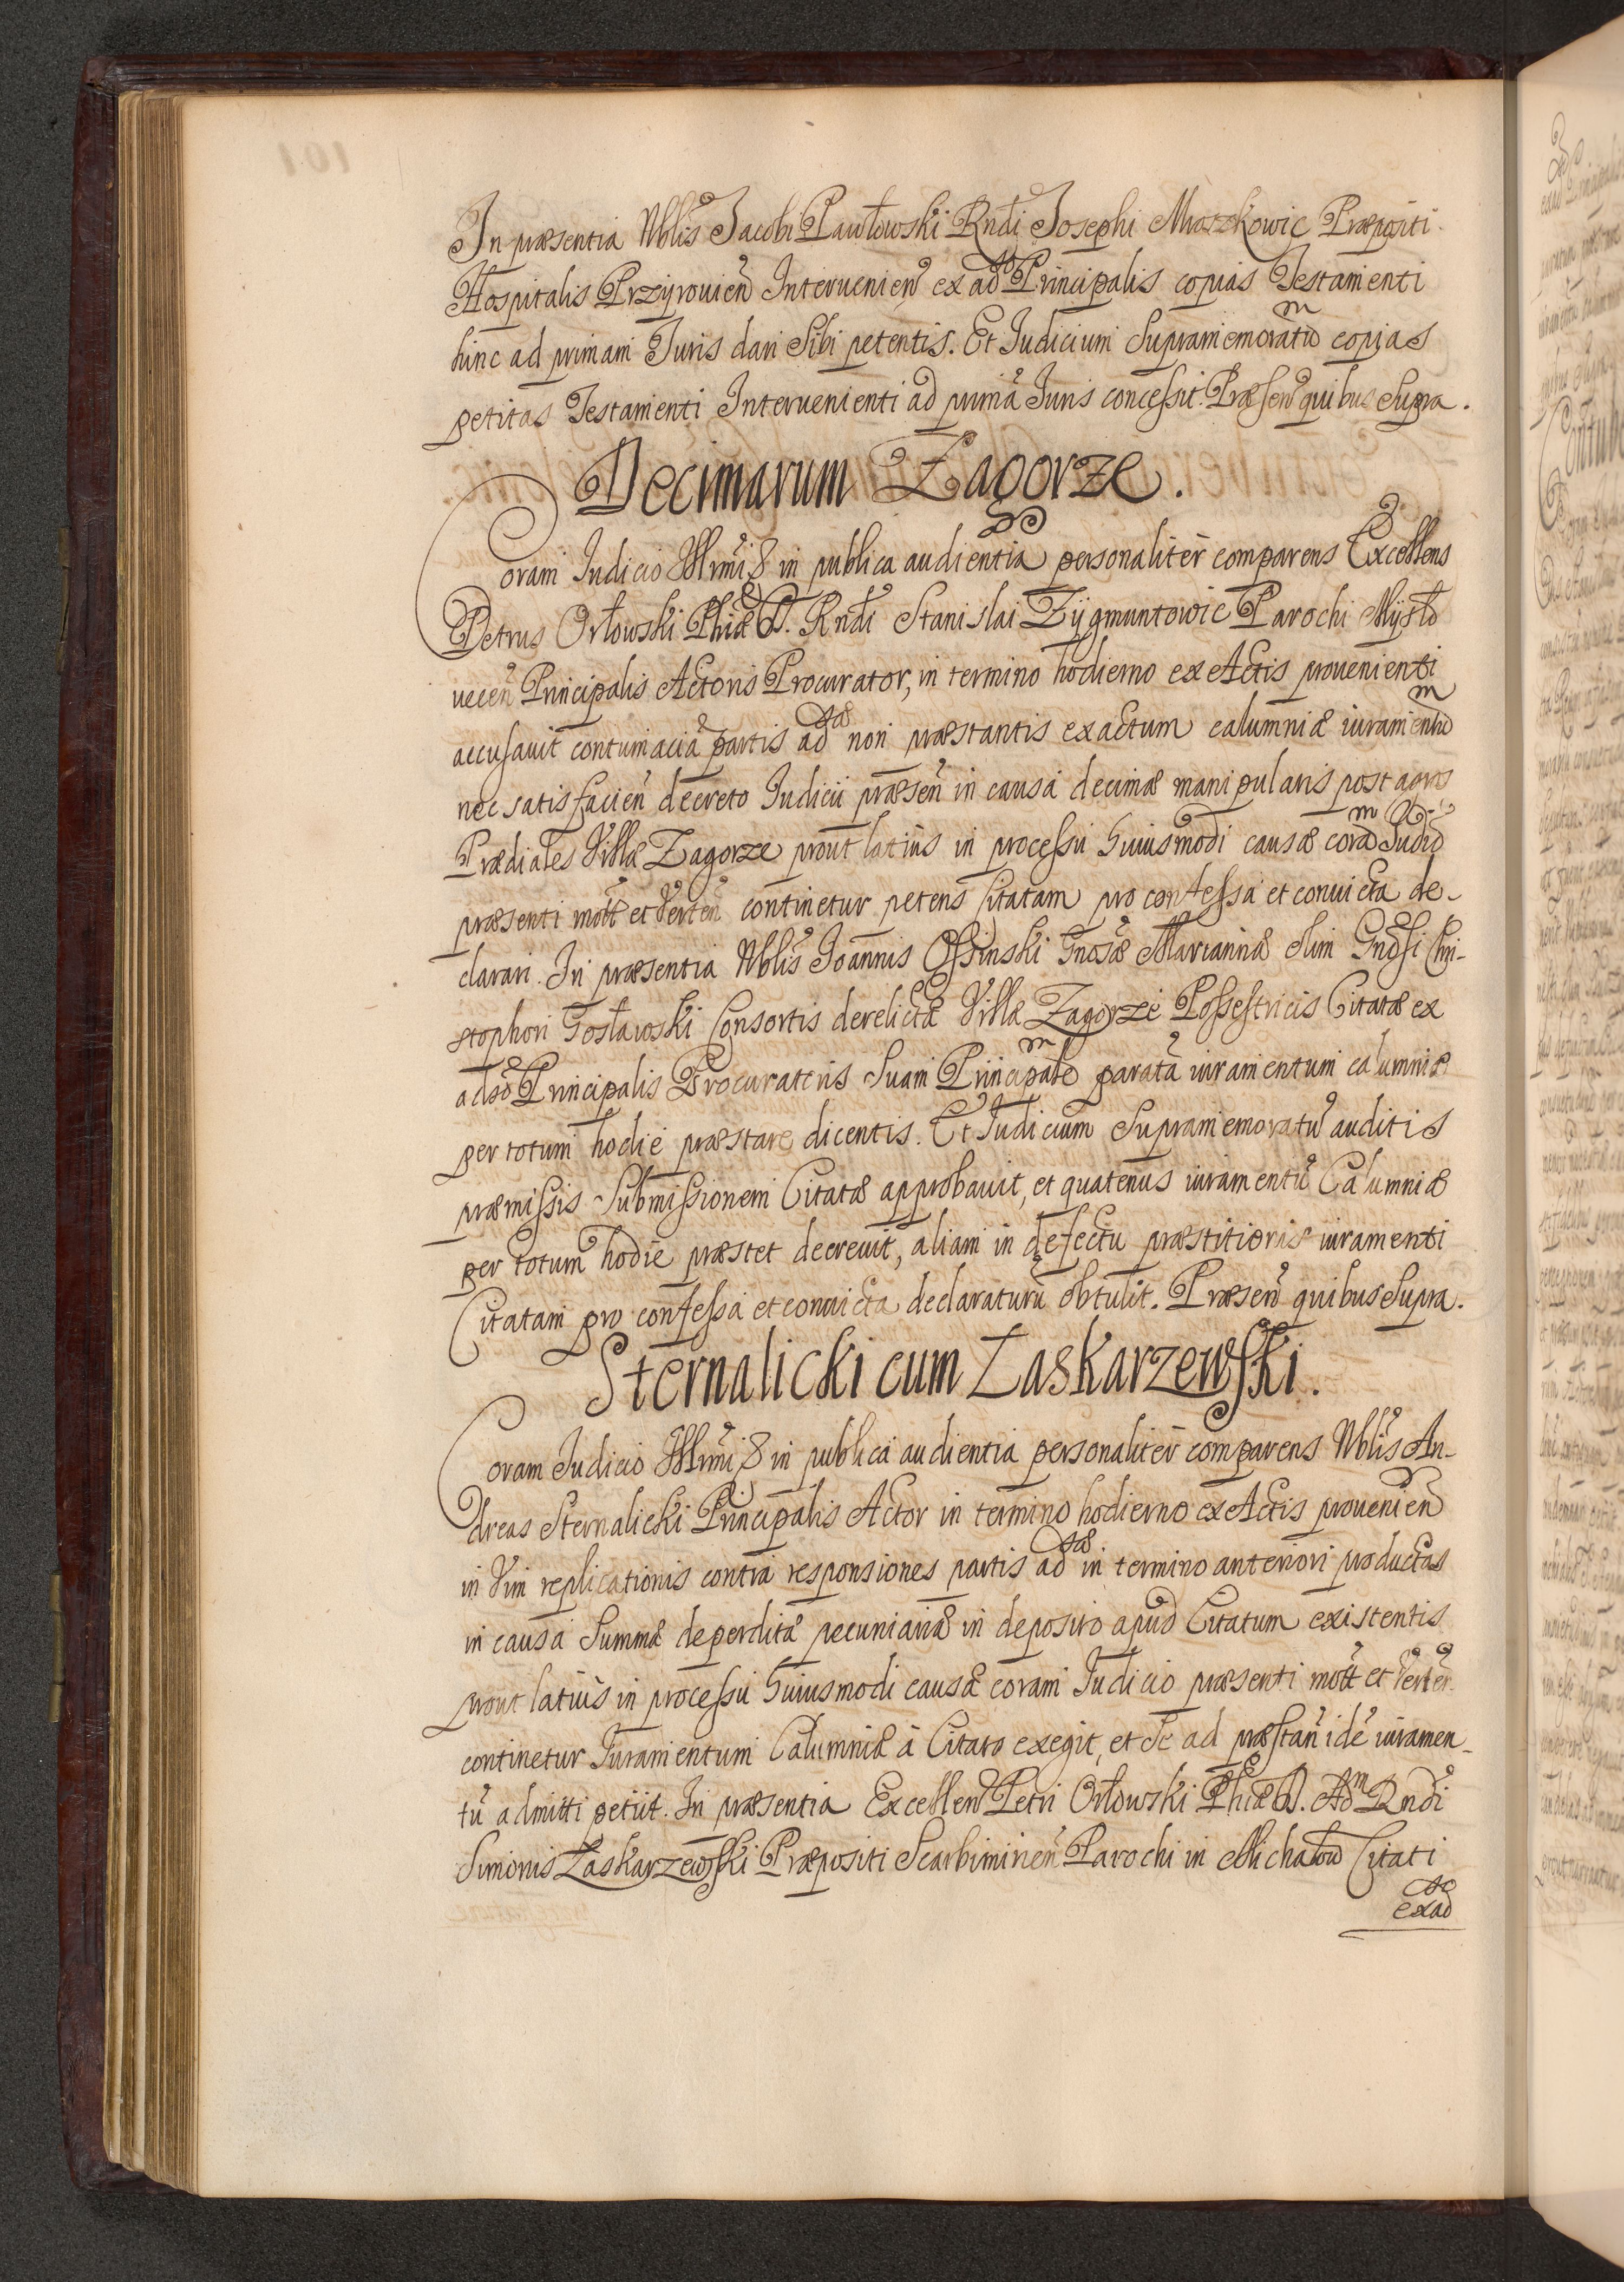 In præsentia Nblis Jacobi Pawłowski Rndi Josephi Mroszkowic Præpositi
Hospitalis Przyrouien Interuenien ex adso Principalis copias Testamenti
hinc ad primam Juris dari Sibi petentis. Et Judicium Supramemoratum copias
petitas Testamenti Interuenienti ad primã Juris concessit. Præsen quibus Supra.
Decimarum Zagorze.
Coram Judicio Illrmi S in publica audientia personaliter comparens Excellens
Petrus Orłowski Phiæ D. Rndi Stanislai Zygmuntowic Parochi Mysło
uecen Principalis Actoris Procurator, in termino hodierno ex Actis prouenienti
accusauit contumaciã partis adsæ non præstantis exactum calumniæ iuramentum
nec satisfacien decreto Judicii præsen in causa decimæ manipularis post agros
Prædiales Villæ Zagorze prout latius in processu huiusmodi causæ coram Judio
præsenti mott et Verten continetur petens Citatam pro confessa et conuicta de-
clarari. In præsentia Nblis Joannis Ossinski Gnosæ Mariannæ olim Gnosi Chri-
stophori Gosławski Consortis derelictæ Villæ Zagorze Possestricis Citatæ ex
adso Principalis Procuratoris Suam Principalem paratã iuramentum calumniæ
per totum hodie præstare dicentis. Et Judicium Supramemoratũ auditis
præmissis Submissionem Citatæ approbauit, et quatenus iuramentũ Calumniæ
per totum hodie præstet decreuit, aliam in defectu præstitionis iuramenti
Citatam pro confessa et conuicta declaraturũ obtulit. Præsen quibus Supra.
Sternalicki cum Zaskarzewski.
Coram Judicio Illrmi S in publica audientia personaliter comparens Nblis An-
dreas Sternalicki Principalis Actor in termino hodierno ex Actis prouenien
in Vim replicationis contra responsiones partis adsæ in termino anteriori productas
in causa Summæ deperditæ pecuniariæ in deposito apud Citatum existentis
prout latius in processu huiusmodi causæ coram Judicio præsenti mott et Verten
continetur Juramentum Calumniæ à Citato exegit, et Se ad præstan idẽ iuramen-
tũ admitti petiit. In præsentia Excellen Petri Orłowski Phiæ D. Adm Rndi
Simonis Zaskarzewski Præpositi Scarbimirien Parochi in Michałow Citati
ex adso